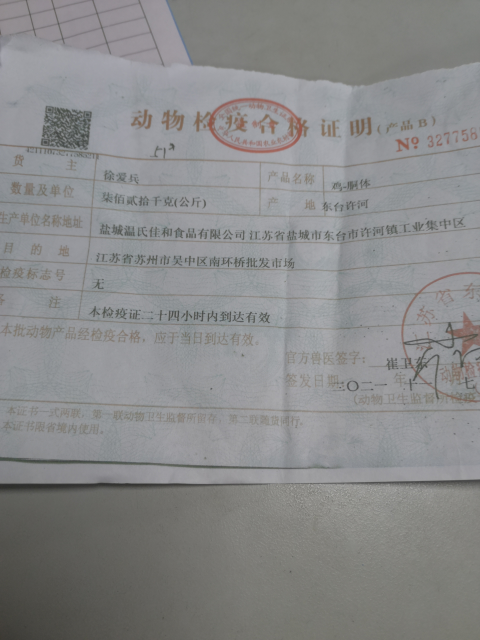 动物检疫合格证明(产品B)
№ 327756
货 主 徐爱兵 产品名称 鸡-胴体
数量及单位 柒佰贰拾千克(公斤) 产 地 东台许河
生产单位名称地址 盐城温氏佳和食品有限公司 江苏省盐城市东台市许河镇工业集中区
目 的 地 江苏省苏州市吴中区南环桥批发市场
检疫标志号 无
备 注 本检疫证二十四小时内到达有效
本批动物产品经检疫合格，应于当日到达有效。
官方兽医签字： 崔卫东
签发日期： 二〇二一 年 十 七
(动物卫生监督
本证书一式两联，第一联动物卫生监督所留存，第二联随货同行。
本证书限省境内使用。